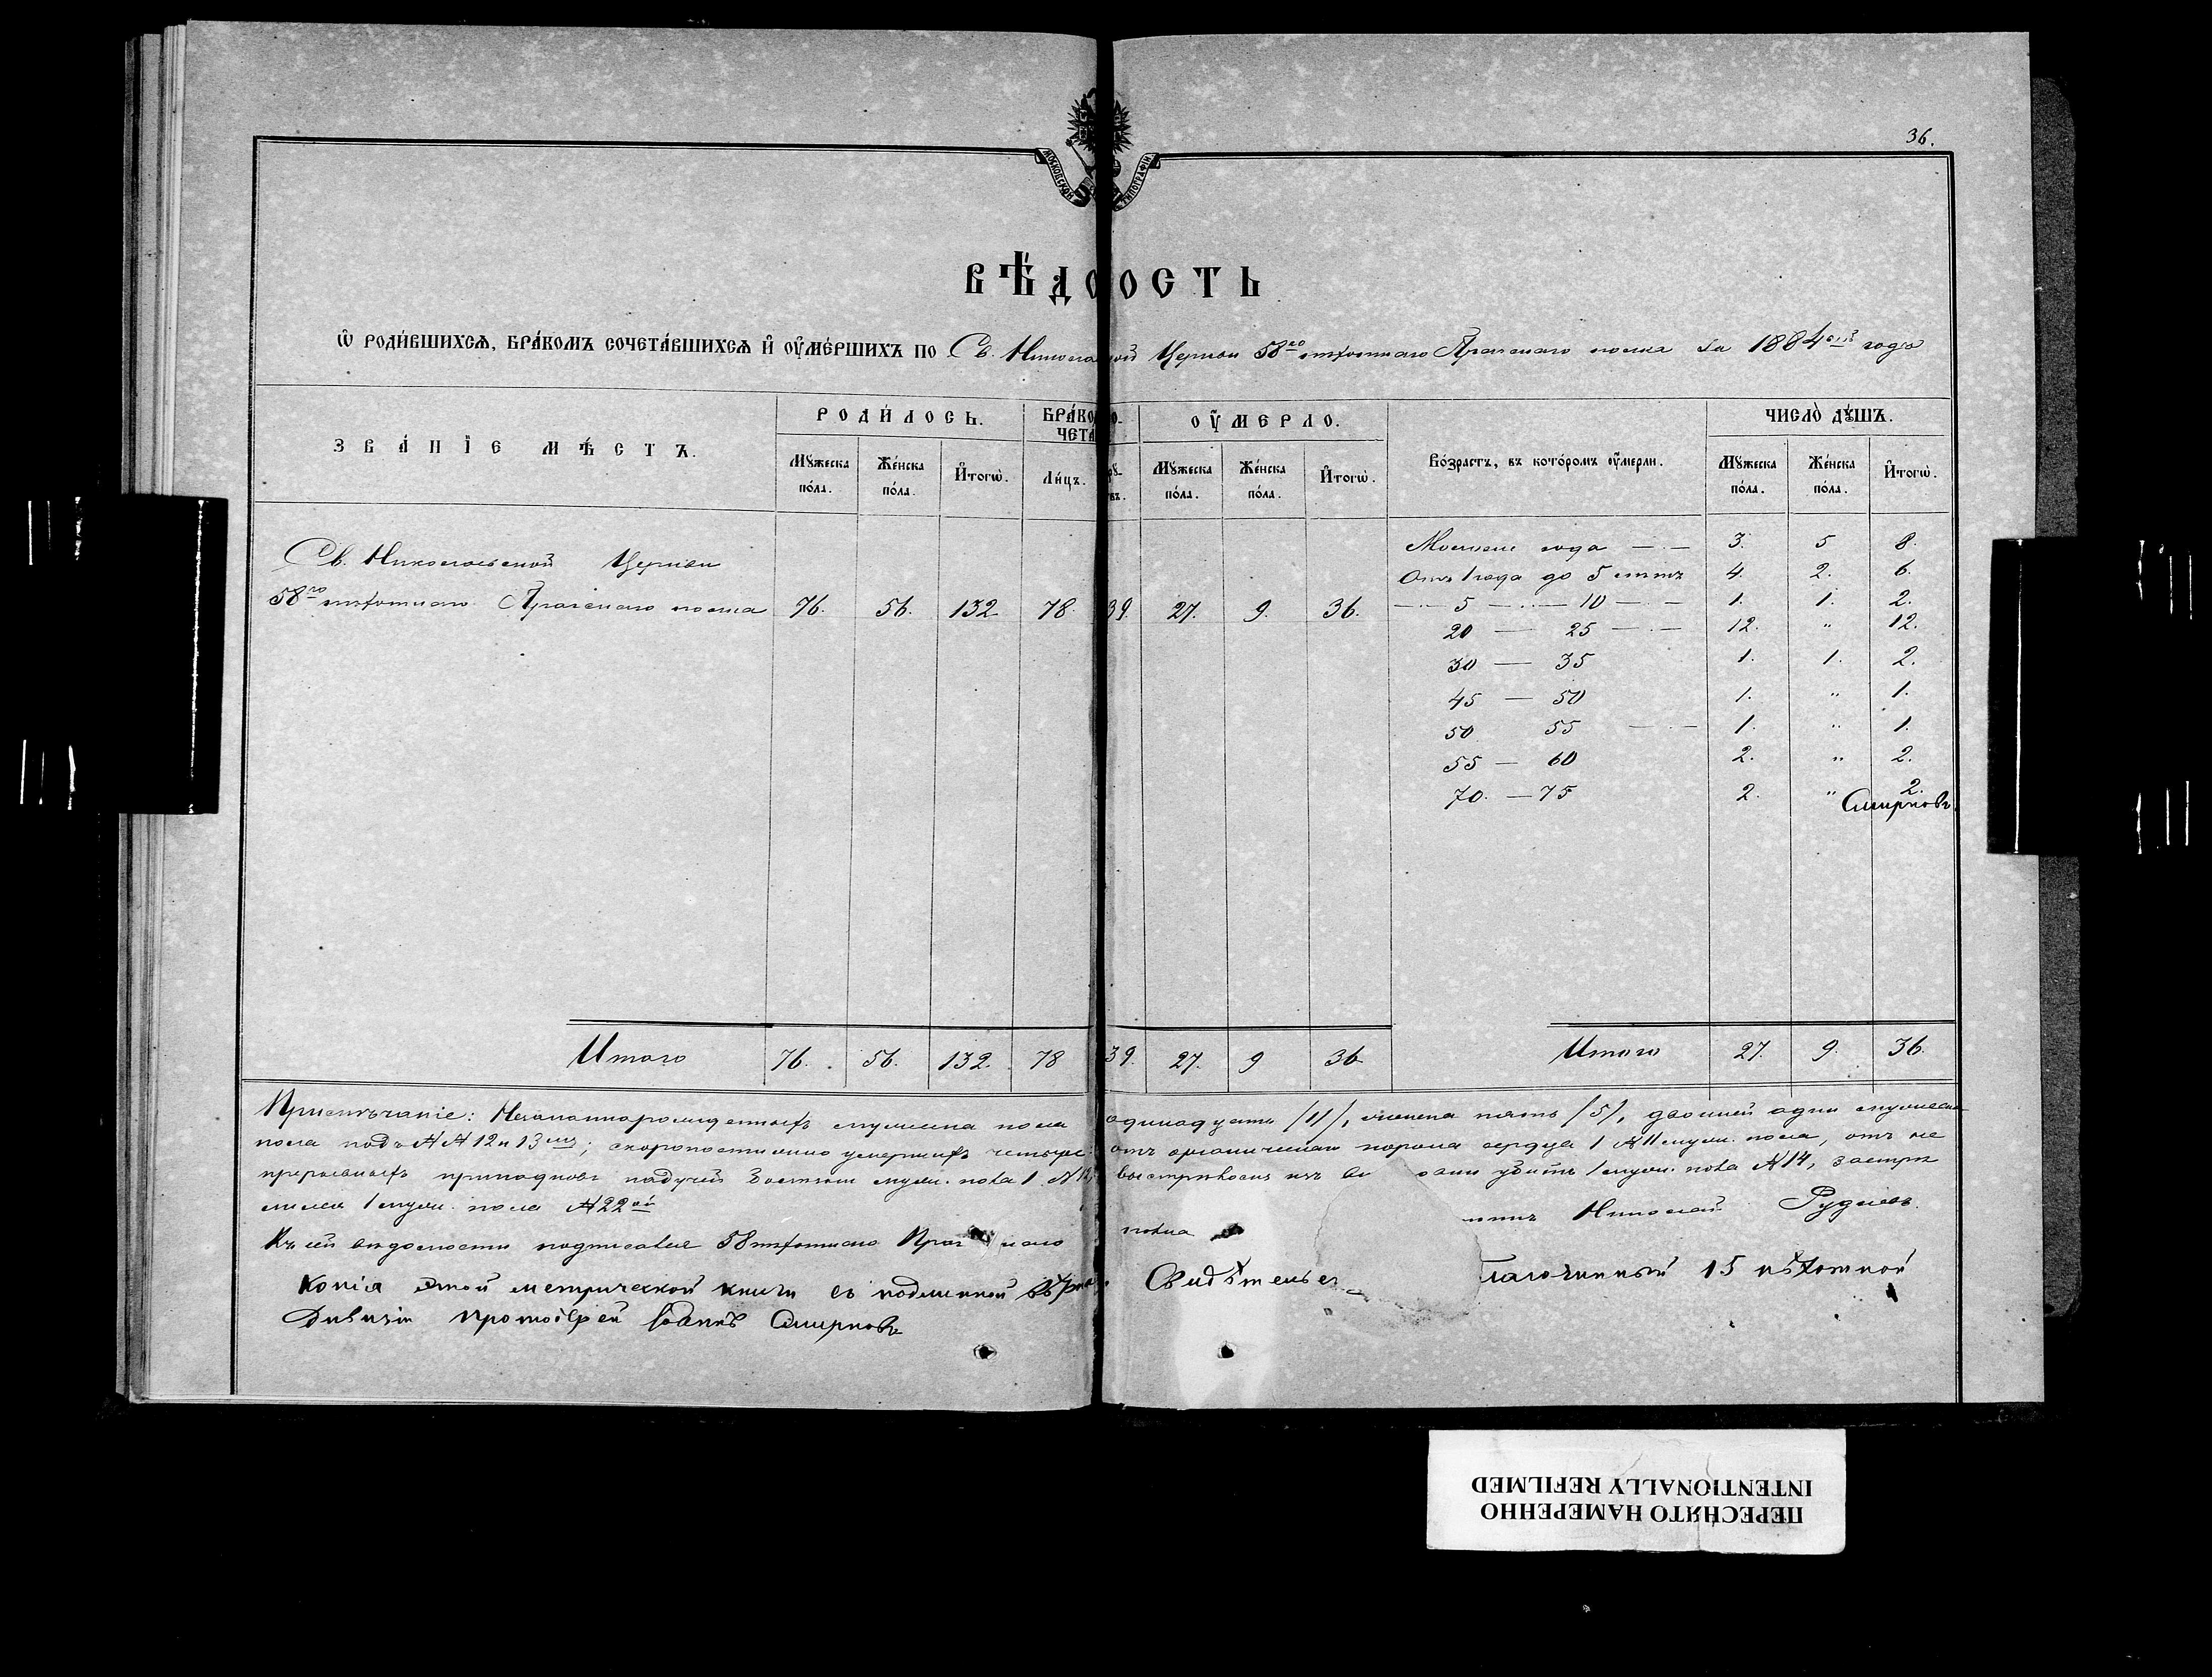 36.
МОСКОВСКОЙ ТИПОГРАФІИ
ВѢДО ОСТЬ
Ѡ РОДИ́ВШИХСѦ, БРА́КОМЪ СОЧЕТА́ВШИХСѦ И҆ ОУ҆МЕ́РШИХЪ ПО Св. Никола ой Церкви 58го пѣхотнаго Прагскаго полка За 1884 годъ
ЗВА́НІЕ МѢ́СТЪ. РОДИ́ЛОСЬ. БРА́КО О- ОУ҆́МЕРЛО. Во́зрастъ, въ кото́ромъ оу҆́мерли. ЧИСЛО̀ ДꙊШЪ.
ЧЕТА
Мꙋ́жеска по́ла. Же́нска по́ла. И҆тогѡ̀. Ли́цъ. рꙋ- въ. Мꙋ́жеска по́ла. Же́нска по́ла. И҆тогѡ̀. Мꙋ́жеска по́ла. Же́нска по́ла. И҆тогѡ̀.
Св. Никольской Церкви
58го пѣхотнаго Прагскаго полка 76. 56. 132 78 39. 27. 9. 36.
Моложе года — 3. 5 8.
Отъ 1 года до 5 лѣтъ 4. 2. 6.
— 5 — 10 — 1. 1. 2.
20 — 25 — 12. " 12.
30 — 35 1. 1. 2.
45 — 50 1. " 1.
50 55 — 1. " 1.
55 — 60 2. " 2.
70. — 75 2. " 2.
Смирновъ.
Итого 76. 56. 132. 78 39. 27. 9 36 Итого 27. 9. 36.
Примѣчаніе: Незаконнорожденныхъ мужеска пола одинадцать /11/, женска пять /5/, двойней одни мужеска
пола подъ № № 12 и 13; скоропостижно умершихъ четыре: отъ органическаго порока сердца 1 № 11 муж. пола, отъ не
прерывныхъ припадковъ падучей болѣзни муж. пола 1 № 12, выстрѣломъ изъ убитъ 1 муж. пола № 14, застрѣ
лился 1 муж. пола № 22
Къ сей вѣдомости подписался 58 пѣхотнаго Праг каго полка Николай Рудневъ.
Копія этой метрической книги съ подлинной вѣрна. Свидѣтельс лагочинный 15 пѣхотной
Дивизіи протоіерей Іоаннъ Смирновъ
ПЕРЕСНЯТО НАМЕРЕННО
INTENTIONALLY REFILMED